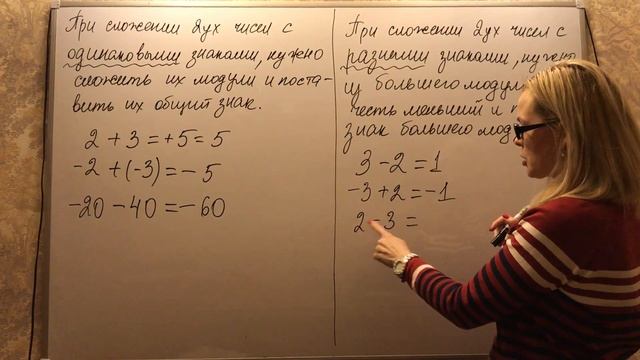 При сложении 2ух чисел с
одинаковыми знаками, нужно
сложить их модули и поста-
вить их общий знак.
2 + 3 = +5 = 5
-2 + (-3) = -5
-20 - 40 = -60
При сложении 2ух чисел с
разными знаками, нужно
из большего
честь меньший и
знак большего
3 - 2 = 1
-3 + 2 = -1
2 - 3 =